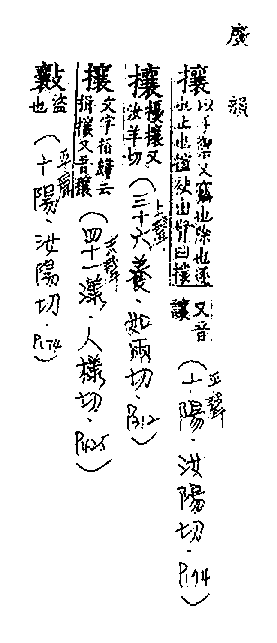 廣韻
攘 以手禦又竊也除也逐也止也揎袂出臂曰攘 又音讓 (平聲 十陽.汝陽切.P174)
攘 擾攘又汝羊切 (上聲 三十六養.如兩切.P312)
攘 文字指歸云揖攘又音穰 (去聲 四十一漾.人樣切.P425)
㰂盜也 (平聲 十陽.汝陽切.P174)